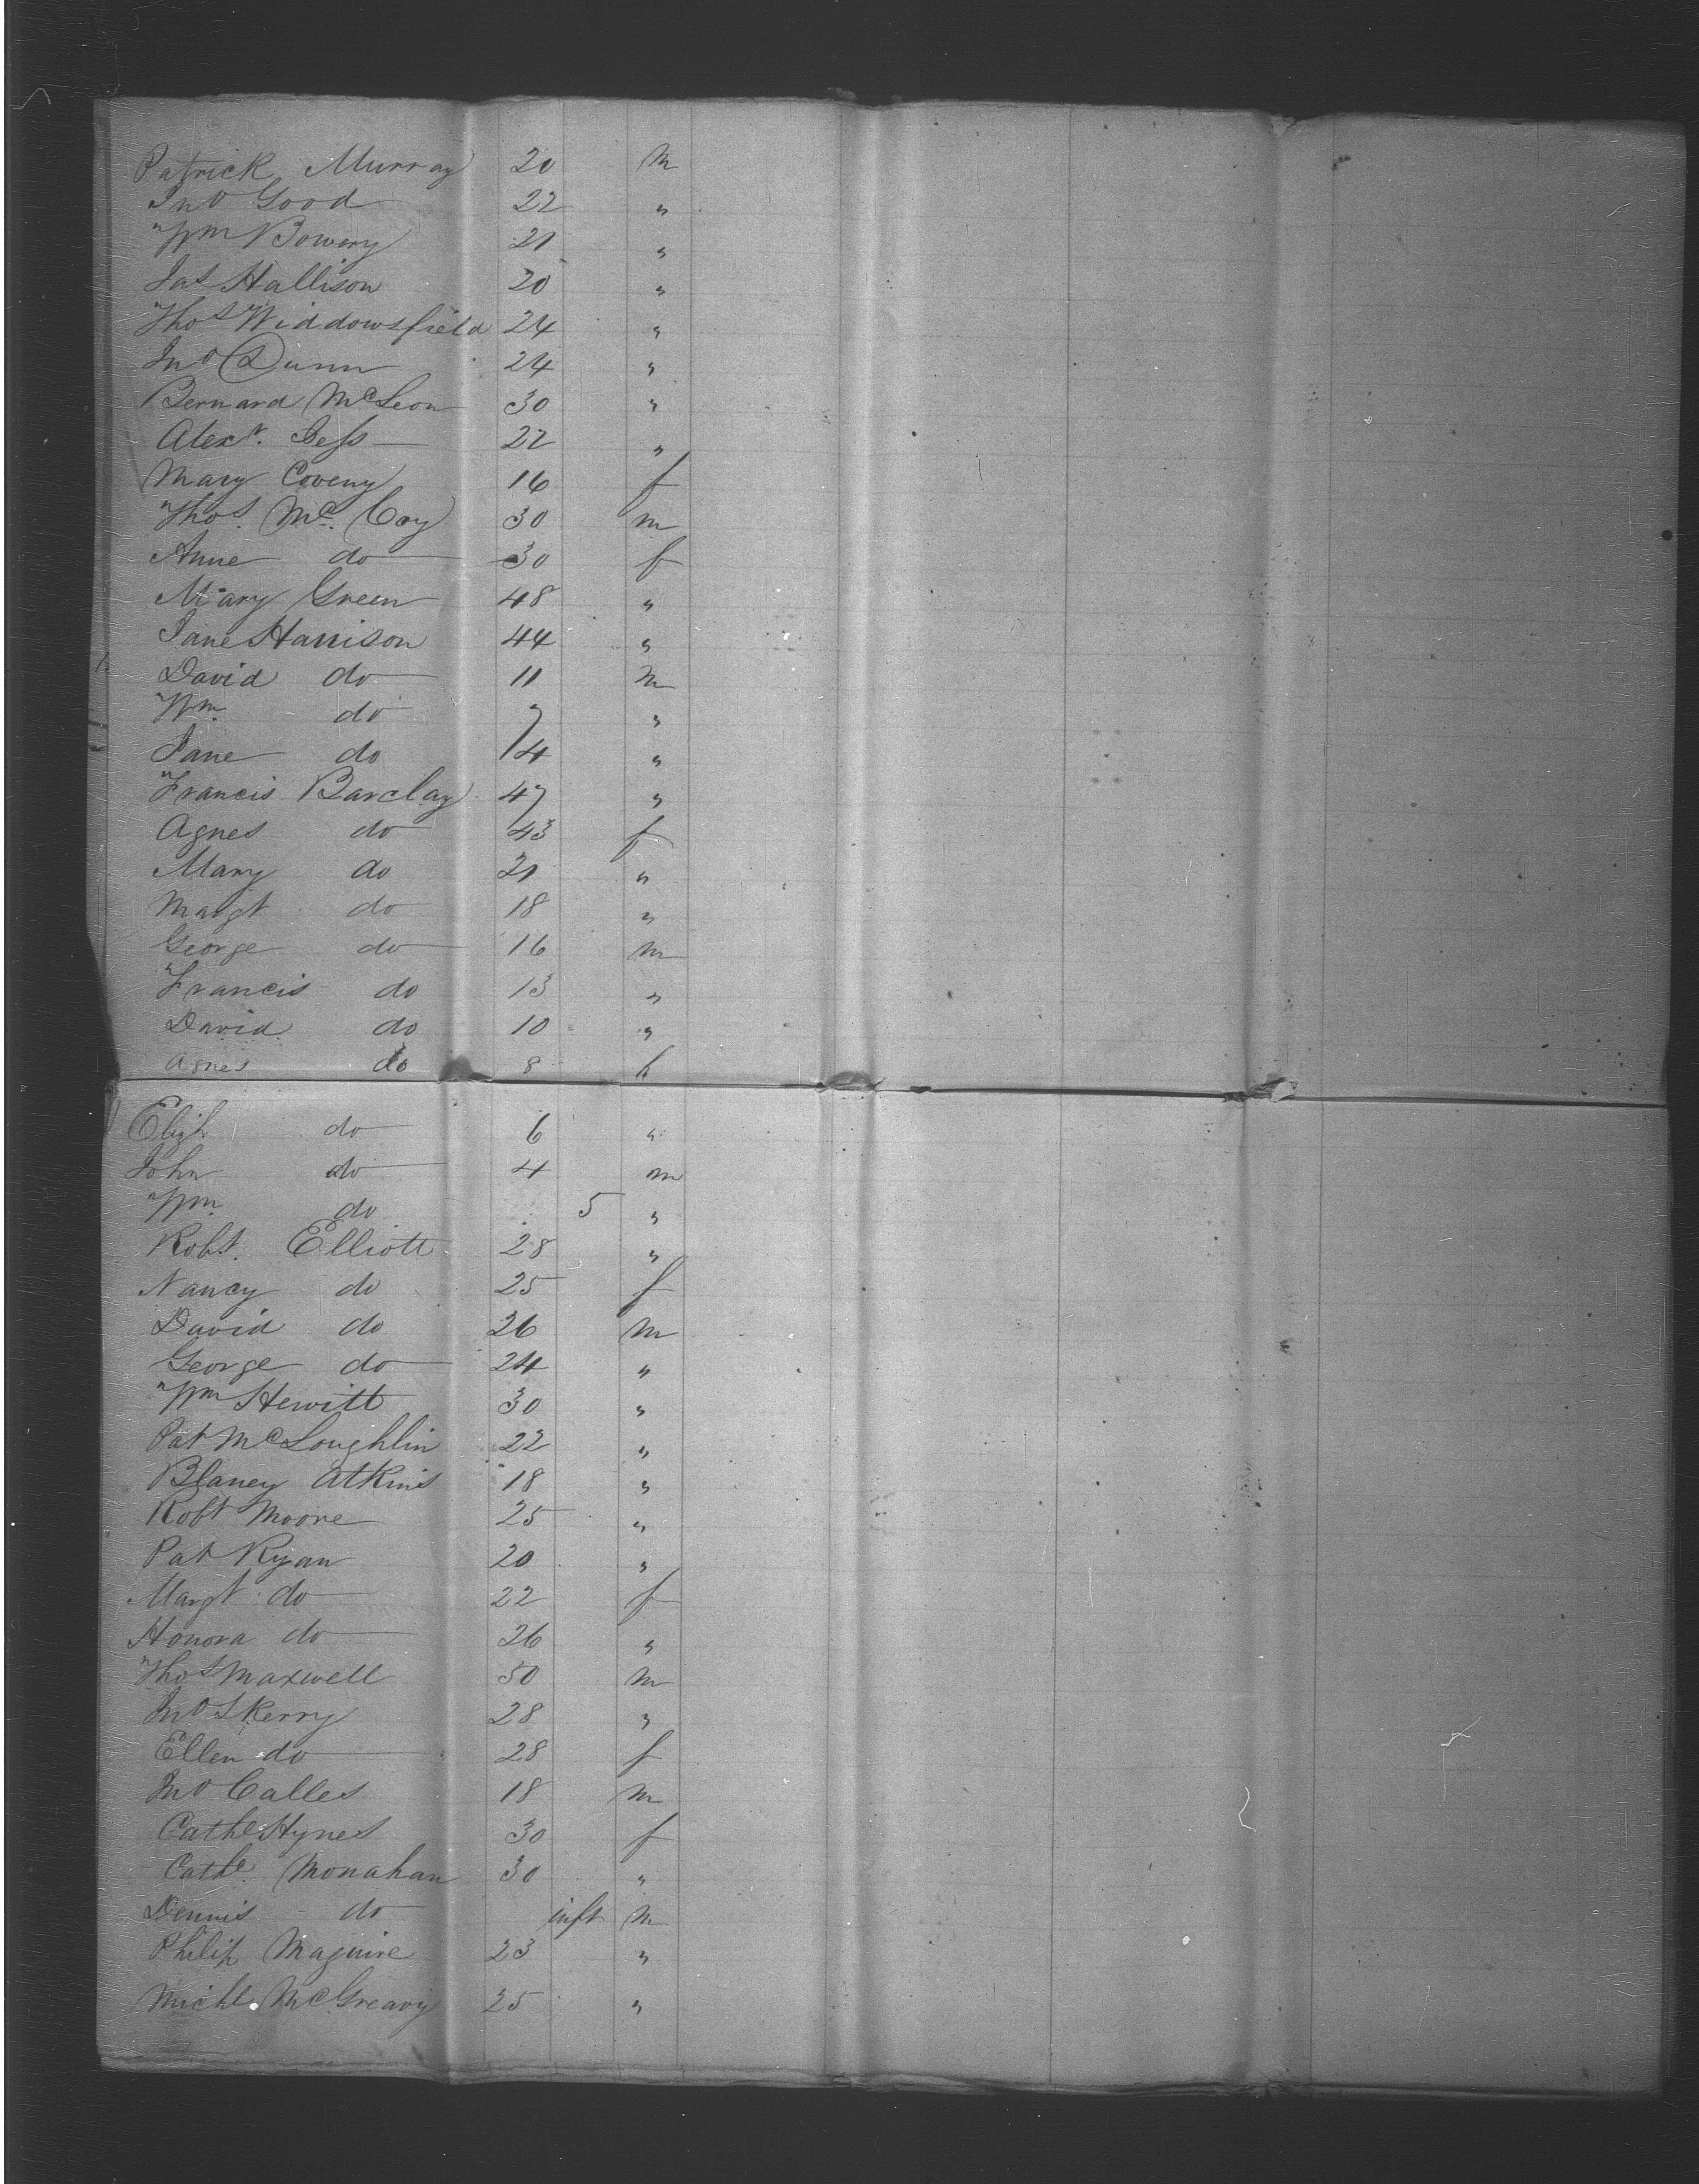 Patrick Murray 20 m
Jno Good 22 "
Wm Bowery 21 "
Jas Hallison 20 "
Thos Widdowsfield 24 "
Jno Dunn 24 "
Bernard McLeon 30 "
Alexr. Jess 22 "
Mary Coveny 16 f
Thos. Mc. Coy 30 m
Anne do 30 f
Mary Green 48 "
Jane Harrison 44 "
David do 11 m
Wm. do 7 "
Jane do 14 "
Francis Barclay 47 "
Agnes do 43 f
Mary do 21 "
Margt do 18 "
George do 16 m
Francis do 13 "
David do 10 "
Agnes do 8 f
Elizh do 6 "
John do 4 m
Wm. do 5 "
Robt. Elliott 28 "
Nancy do 25 f
David do 26 m
George do 24 "
Wm Hewitt 30 "
Pat McLoughlin 22 "
Blaney Atkins 18 "
Robt Moore 25 "
Pat Ryan 20 "
Margt do 22 f
Honora do 26 "
Thos Maxwell 50 m
Jno Skerry 28 "
Ellen do 28 f
Jno Calles 18 m
Cathe Hynes 30 f
Cathe. Monahan 30 "
Dennis do inft m
Philip Maguire 23 "
Michl McGreavy 25 "